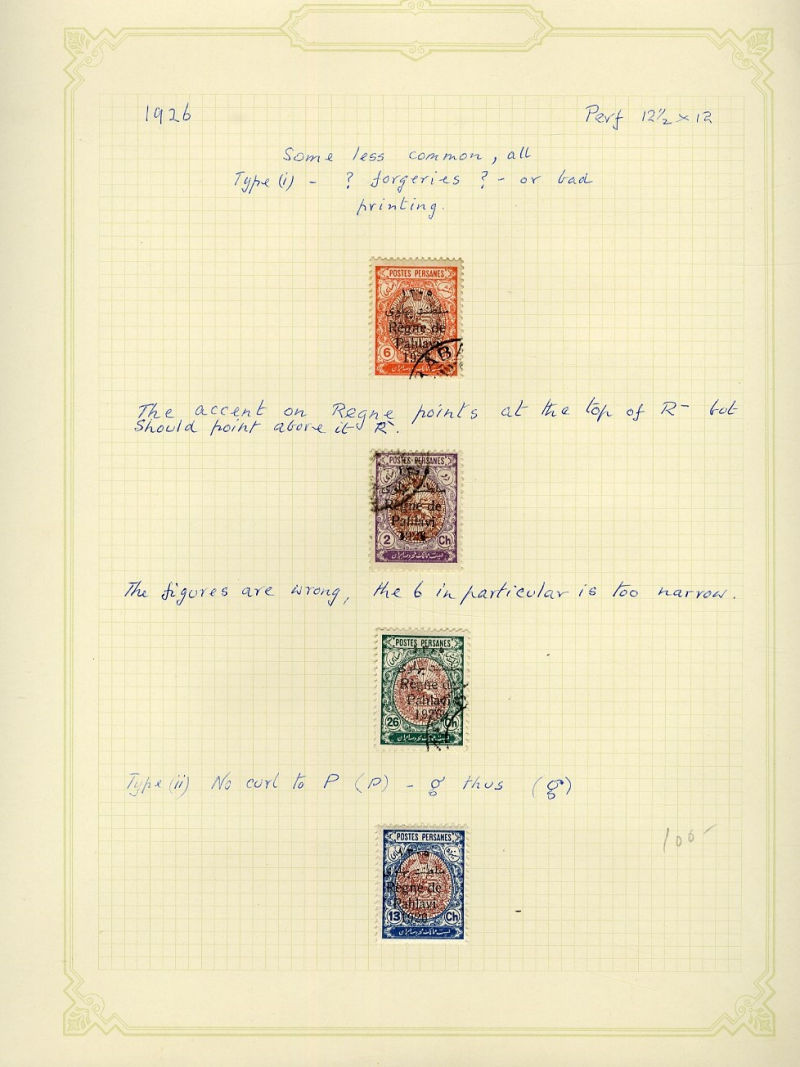 1926
Perf 12½ × 12
Some less common, all
Type (i) - ? forgeries ? - or bad
printing.
POSTES PERSANES
۱۳۰۵
Règne de
Pahlavi
6
The accent on Regne points at the top of R but
should point above it R.
POSTES PERSANES
Règne de
Pahlavi
1926
2 Ch
The figures are wrong, the 6 in particular is too narrow.
POSTES PERSANES
Règne de
Pahlavi
1926
26 Ch
Type (ii) No curl to P (P) - g thus (g)
100-
POSTES PERSANES
۱۳۰۵
Règne de
Pahlavi
1926
13 Ch